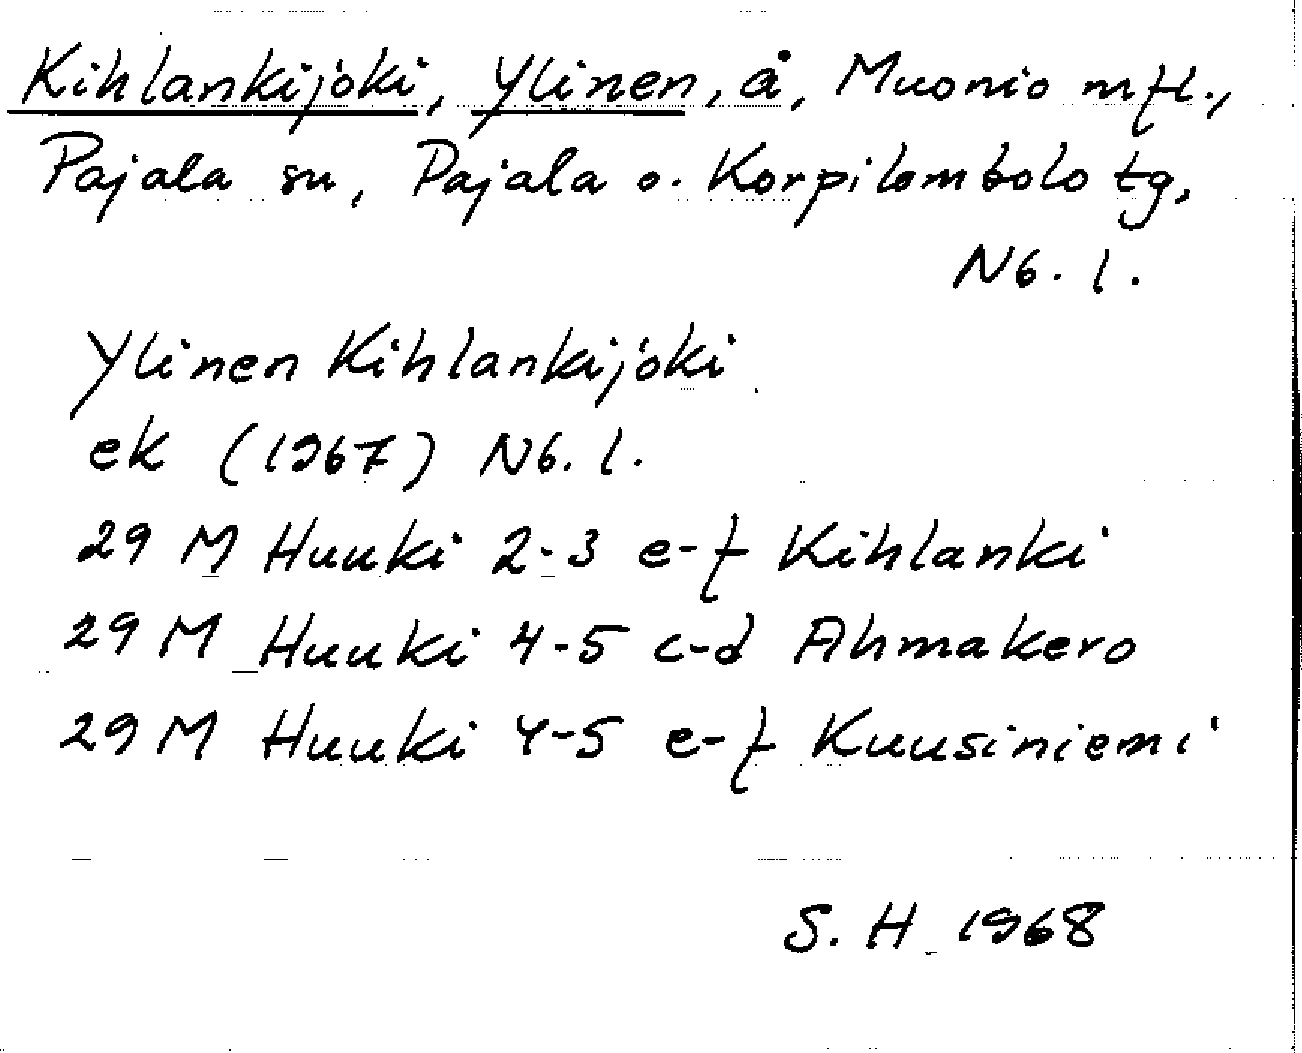 Kihlankijoki, Ylinen, å, Muonio mfl.,
Pajala su, Pajala o. Korpilombolo tg,
Nb. l.
Ylinen Kihlankijoki
ek (1967) Nb. l.
29 M Huuki 2-3 e-f Kihlanki
29 M Huuki 4-5 c-d Ahmakero
29 M Huuki 4-5 e-f Kuusiniemi
S. H 1968